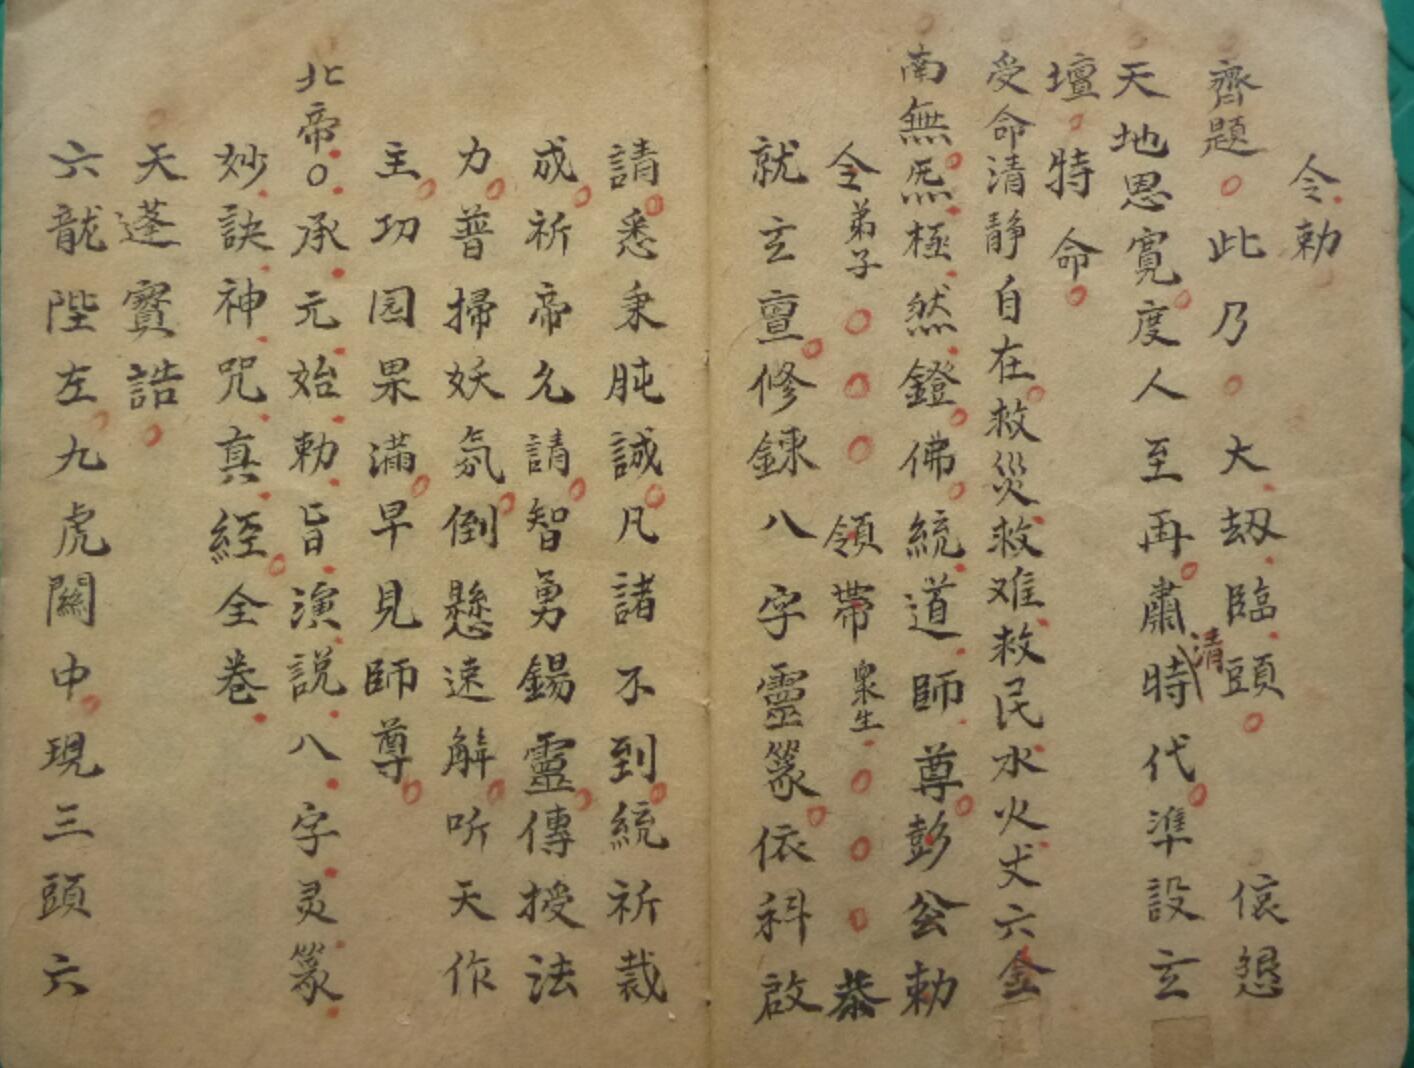 令勅
齊題○此乃○大刼臨頭○㑥懇
天地恩寛○度人至再○肅清時代○準設玄
壇○特命○
受命清静自在○救災救难救民水火丈六金
南無炁極然鐙○佛○統道師尊○彭公勅
令弟子○○○領帶衆生○○○恭
就玄亶○修錬八字靈篆○依科啟
請○悉秉肫誠○凡諸不到○統祈裁
成○祈帝允請○智勇錫靈○傳授法
力○普掃妖氛○倒懸遠解○听天作
主○功园果滿○早見師尊○
北帝○承元始勅旨演説八字灵篆
妙訣神咒真經○全巻
天蓬寳誥○
六龍陛左○九虎關中○現三頭六